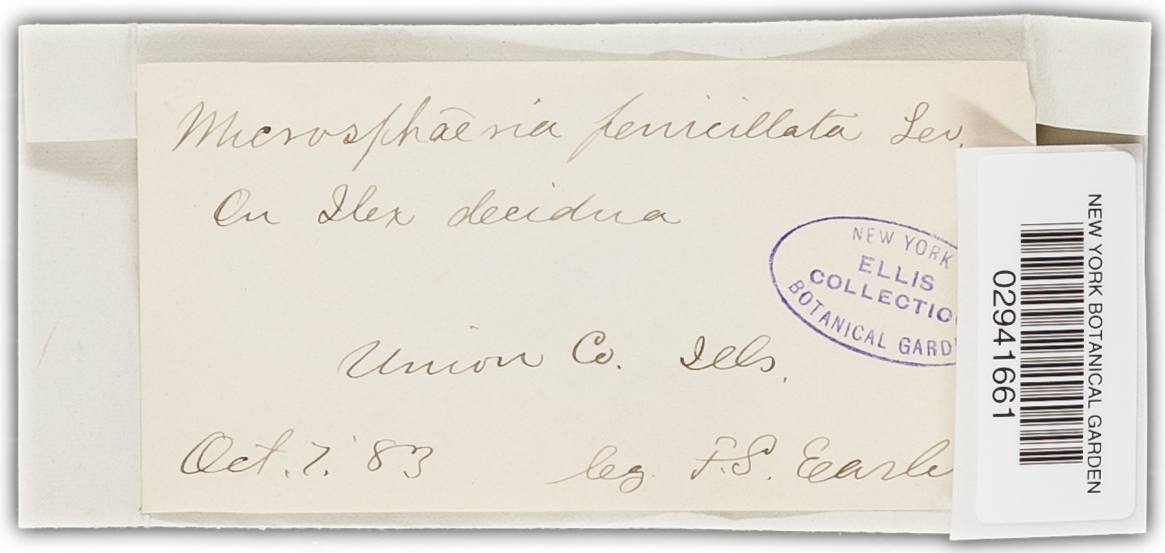 Microsphaeria penicillata Lev.
On Ilex decidua
NEW YORK
ELLIS
COLLECTIO
BOTANICAL GARD
Union Co. Ills.
Oct. 7. '83 leg. F.S. Earle
NEW YORK BOTANICAL GARDEN
02941661